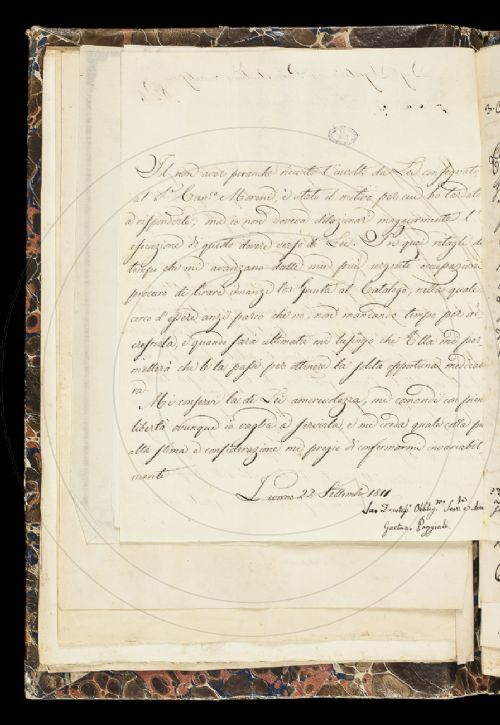 Il non aver peranche ricevuto l'involto da Lei consegnato
al Sr. Canco. Moreni, è stato il motivo per cui ho tardato
a risponderle; ma io non doveva dilazionar maggiormente l'
esecuzione di questo dovere verso di Lei. In quei ritagli di
tempo che mi avanzano dalle mie più urgenti occupazioni
procuro di tirare innanzi la Giunta al Catalogo, nella quale
cerco d'essere anzi parco che no, non mancando tempo per ac
crescerla, e quando sarà ultimata mi lusingo che Ella mi per
metterà che le la passi per ottenere la solita opportuna medica
Mi conservi la di Lei amorevolezza, mi comandi con pien
libertà ovunque io vaglia a servirla, e mi creda quale colla più
alta stima e considerazione mi pregio di confermarmi invariabil
mente
Livorno 22 Settembre 1811
Suo Devotisso. Obbligmo. Serv. e Am
Gaetano Poggiali